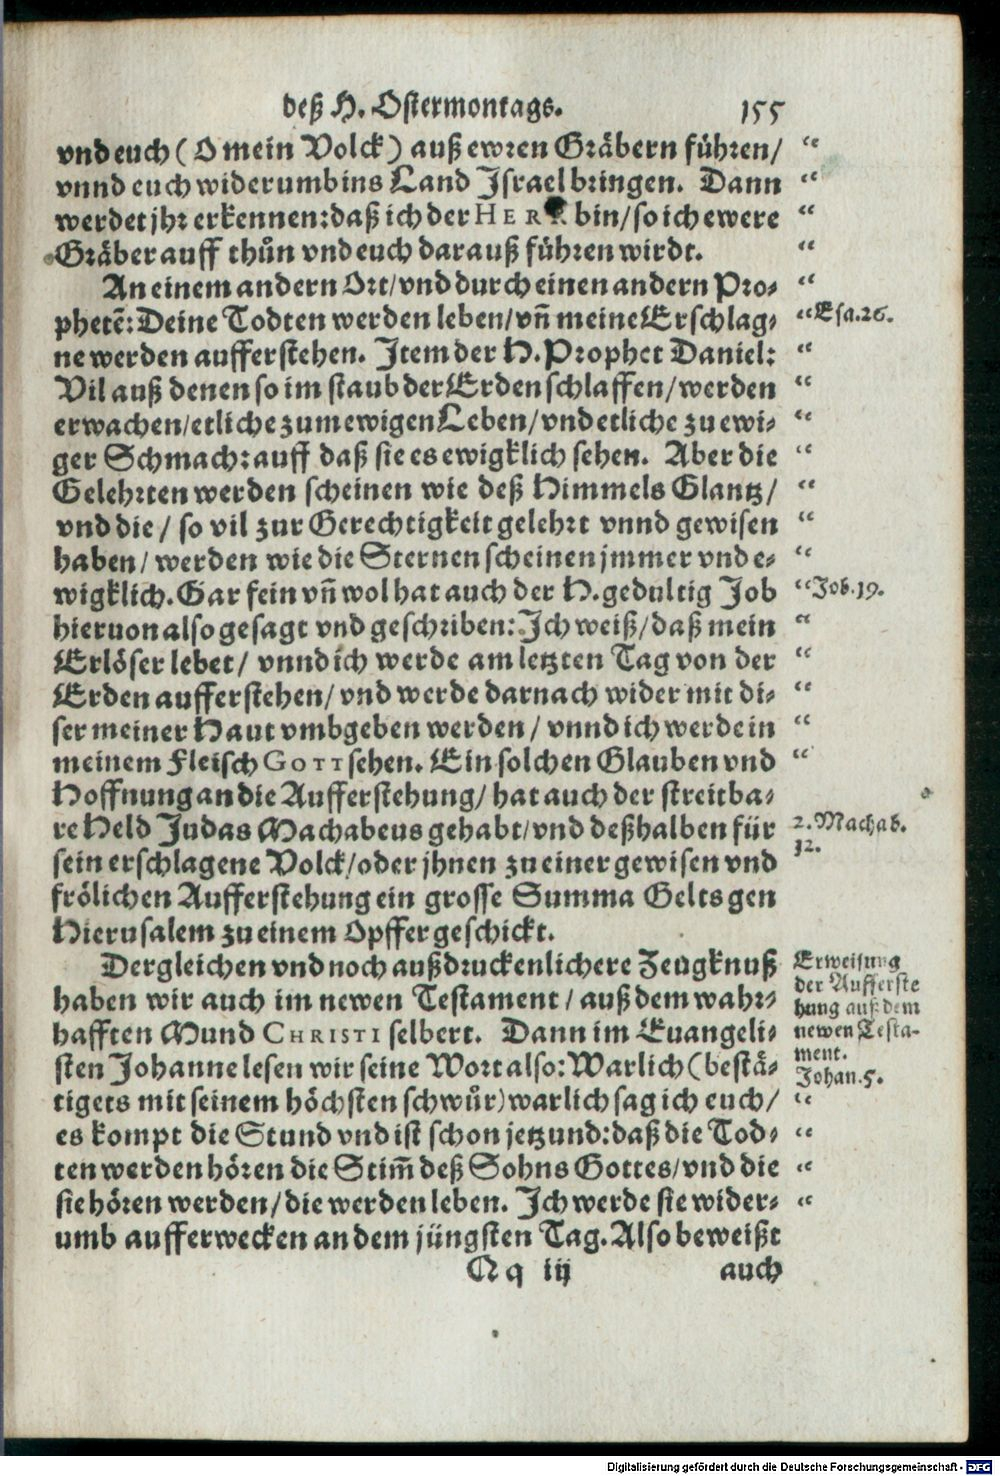 deß H. Ostermontags. 155
vnd euch (O mein Volck) auß ewren Gräbern führen/ “
vnnd euch widerumb ins Land Jsrael bringen. Dann “
werdet jhr erkennen: daß ich der HERR bin/ so ich ewere “
Gräber auff thůn vnd euch darauß führen wirdt. “
An einem andern Ort/ vnd durch einen andern Pro- “
phetẽ: Deine Todten werden leben/ vñ meine Erschlag- “ Esa. 26.
ne werden aufferstehen. Jtem der H. Prophet Daniel: “
Vil auß denen so im staub der Erden schlaffen/ werden “
erwachen/ etliche zum ewigen Leben/ vnd etliche zu ewi- “
ger Schmach: auff daß sie es ewigklich sehen. Aber die “
Gelehrten werden scheinen wie deß Himmels Glantz/ “
vnd die/ so vil zur Gerechtigkeit gelehrt vnnd gewisen “
haben/ werden wie die Sternen scheinen jmmer vnd e- “
wigklich. Gar fein vñ wol hat auch der H. gedultig Job “ Job. 19.
hieruon also gesagt vnd geschriben: Jch weiß/ daß mein “
Erlöser lebet/ vnnd ich werde am letzten Tag von der “
Erden aufferstehen/ vnd werde darnach wider mit di- “
ser meiner Haut vmbgeben werden/ vnnd ich werde in “
meinem Fleisch GOTT sehen. Ein solchen Glauben vnd “
Hoffnung an die Aufferstehung/ hat auch der streitba-
re Held Judas Machabeus gehabt/ vnd deßhalben für 2. Machab.
12.
sein erschlagene Volck/ oder jhnen zu einer gewisen vnd
frölichen Aufferstehung ein grosse Summa Gelts gen
Hierusalem zu einem Opffer geschickt.
Dergleichen vnd noch außdruckenlichere Zeugknuß
haben wir auch im newen Testament/ auß dem wahr-
hafften Mund CHRISTI selbert. Dann im Euangeli-
sten Johanne lesen wir seine Wort also: Warlich (bestä-
tigets mit seinem höchsten schwůr) warlich sag ich euch/ “
es kompt die Stund vnd ist schon jetzund: daß die Tod- “
ten werden hören die Stim̃ deß Sohns Gottes/ vnd die “
sie hören werden/ die werden leben. Jch werde sie wider- “
umb aufferwecken an dem jüngsten Tag. Also beweißt
Erweisung
der Aufferste
hung auß dem
newen Testa-
ment.
Johan. 5.
Qq iij auch
Digitalisierung gefördert durch die Deutsche Forschungsgemeinschaft - DFG